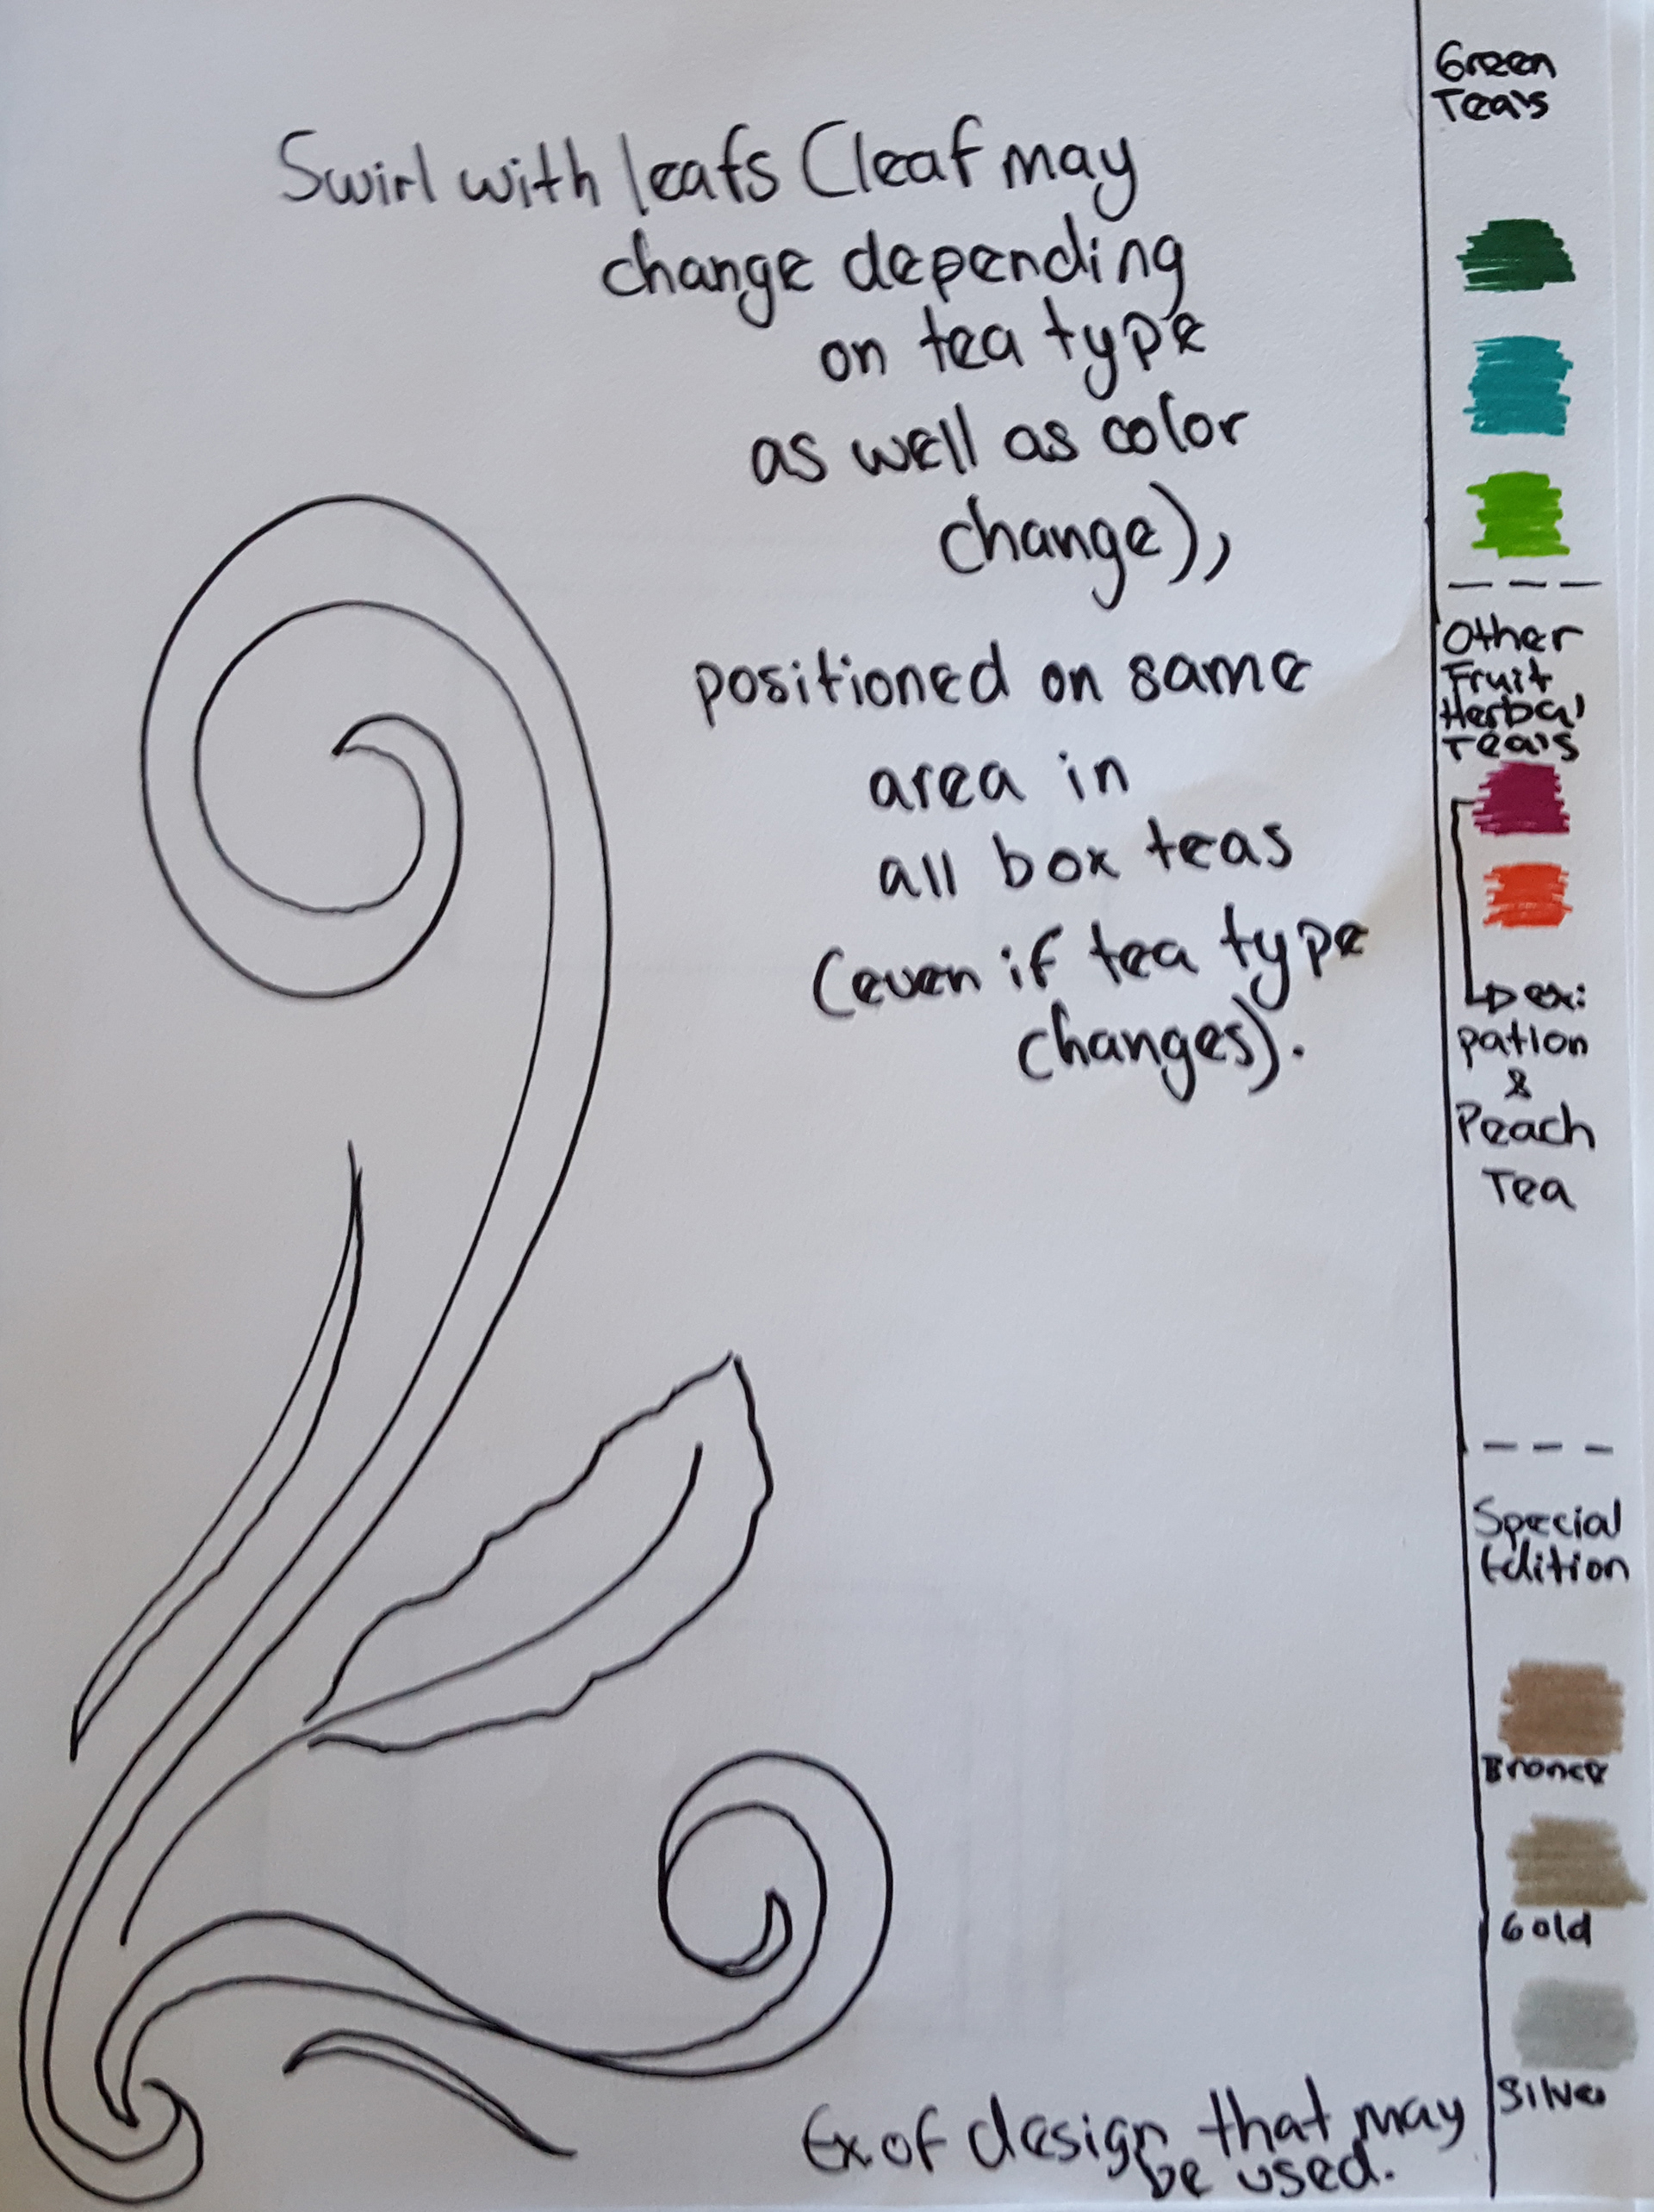 Swirl with leafs (leaf may
change depending
on tea type
as well as color
change),
positioned on same
area in
all box teas
(even if tea type
changes).
Ex of design that may
be used.
Green
Tea's
Other
Fruit
Herbal
Tea's
ex:
pation
&
Peach
Tea
Special
Edition
Bronce
Gold
Silver